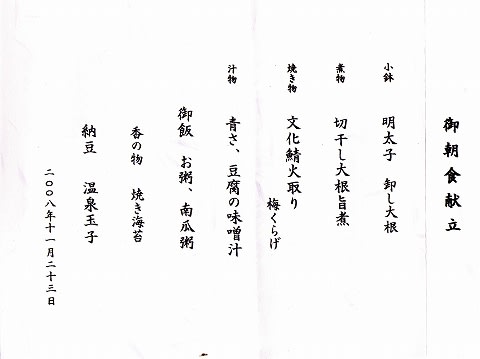 御朝食献立
小鉢 明太子 卸し大根
煮物 切干し大根旨煮
焼き物 文化鯖火取り
梅くらげ
汁物 青さ、豆腐の味噌汁
御飯 お粥、南瓜粥
香の物 焼き海苔
納豆 温泉玉子
二〇〇八年十一月二十三日